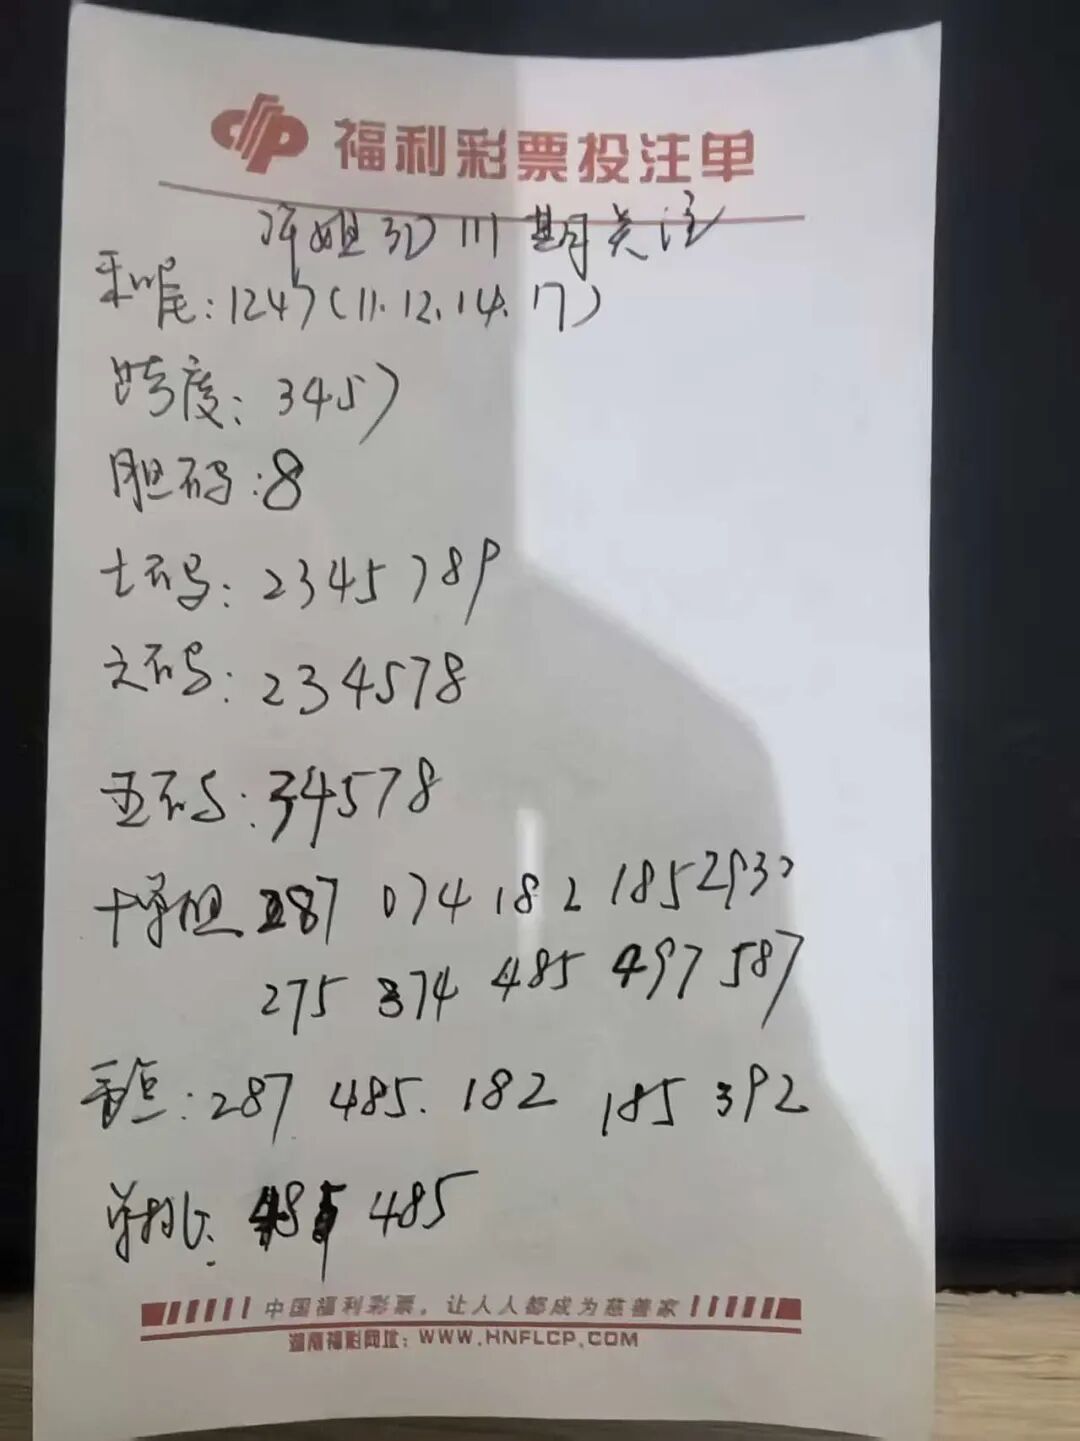 福利彩票投注单
许姐3D 111期关注
和尾:1247(11.12.14.17)
跨度:3457
胆码:8
七码:2345789
六码:234578
五码:34578
十单胆 287 074 182 185 293
275 374 485 497 587
重点:287 485. 182 185 392
单挑: 485 485
中国福利彩票,让人人都成为慈善家
湖南福彩网址:WWW.HNFLCP.COM